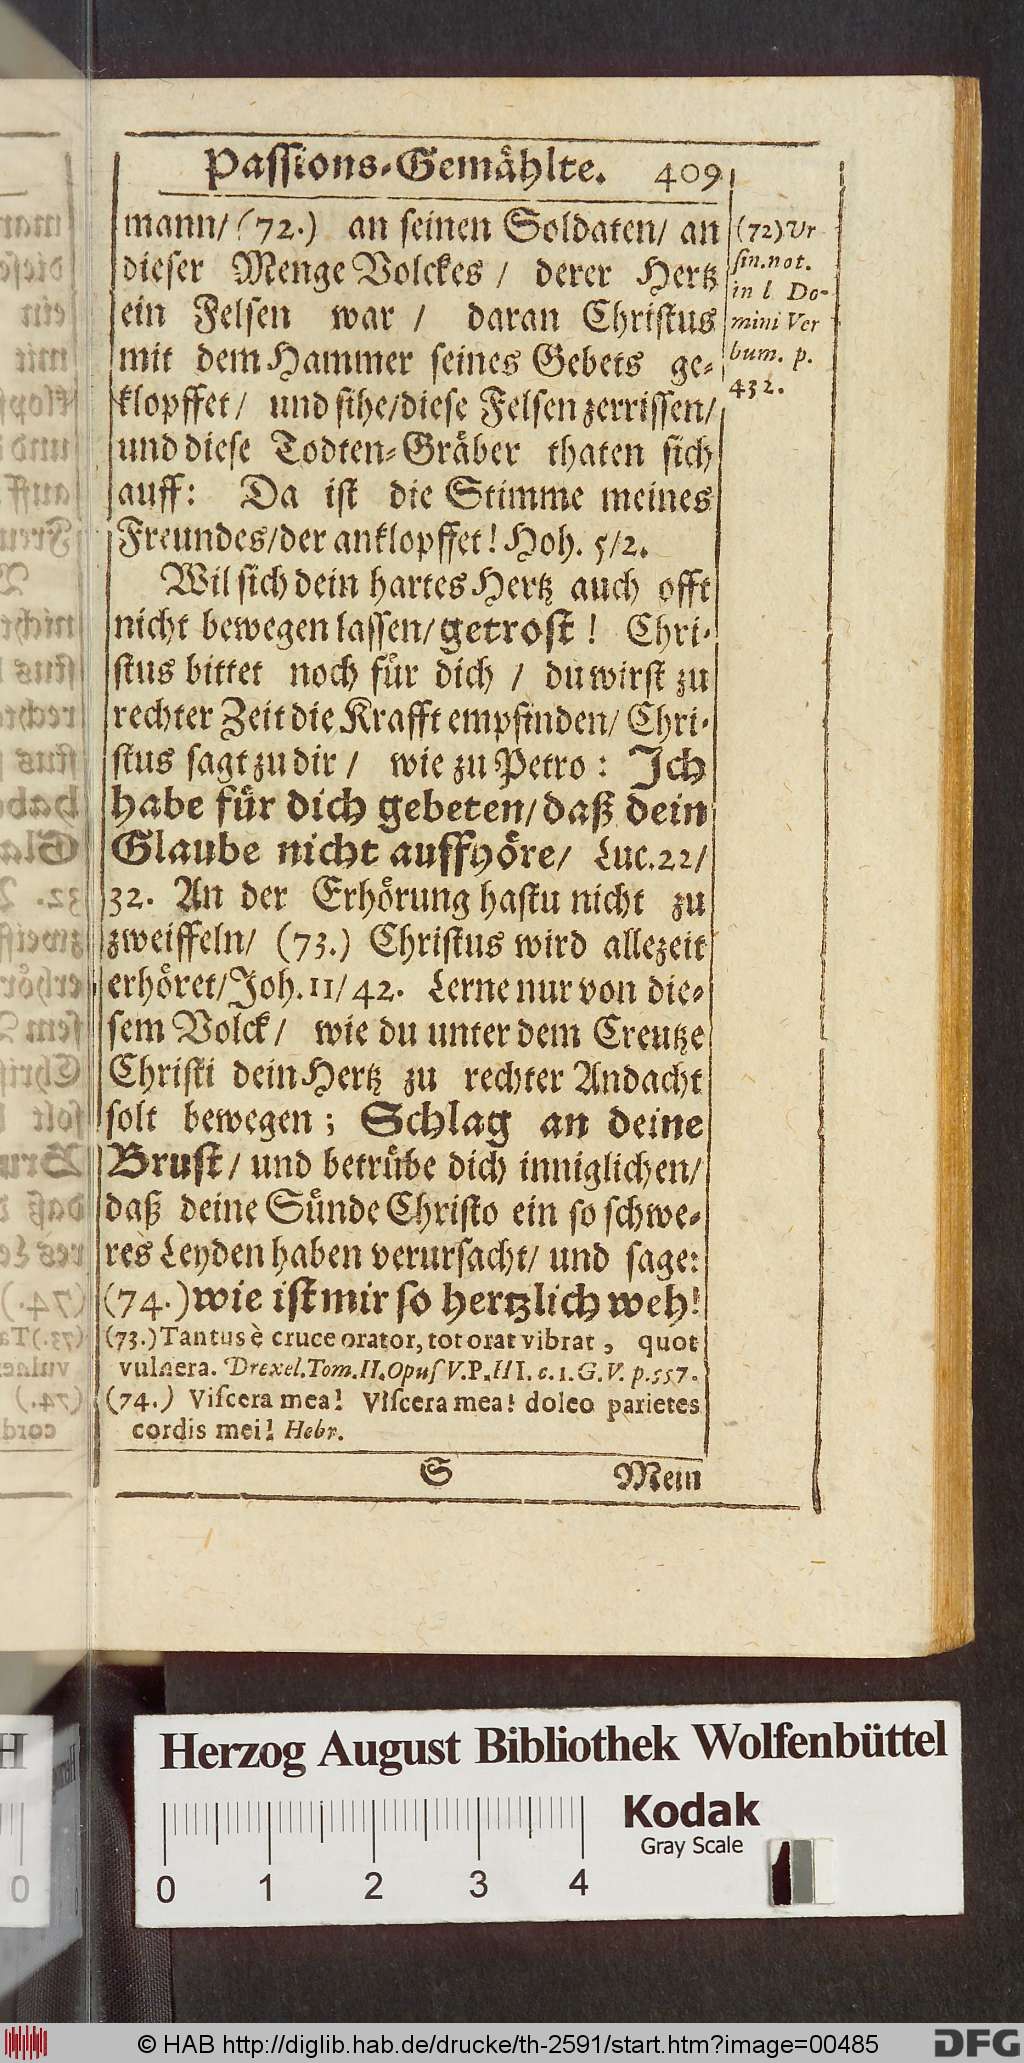 Passions-Gemählte. 409
mann/ (72.) an seinen Soldaten/ an
dieser Menge Volckes / derer Hertz
ein Felsen war / daran Christus
mit dem Hammer seines Gebets ge-
klopffet/ und sihe/diese Felsen zerrissen/
und diese Todten-Gräber thaten sich
auff: Da ist die Stimme meines
Freundes/der anklopffet! Hoh. 5/2.
Wil sich dein hartes Hertz auch offt
nicht bewegen lassen/ getrost! Chri-
stus bittet noch für dich / du wirst zu
rechter Zeit die Krafft empfinden/ Chri-
stus sagt zu dir / wie zu Petro: Ich
habe für dich gebeten/ daß dein
Glaube nicht auffhöre/ Luc.22/
32. An der Erhörung hastu nicht zu
zweiffeln/ (73.) Christus wird allezeit
erhöret/Joh.11/42. Lerne nur von die-
sem Volck/ wie du unter dem Creutze
Christi dein Hertz zu rechter Andacht
solt bewegen; Schlag an deine
Brust/ und betrübe dich inniglichen/
daß deine Sünde Christo ein so schwe-
res Leyden haben verursacht/ und sage:
(74.) wie ist mir so hertzlich weh!
(72) Ur
sin.not.
in l Do-
mini Ver
bum. p.
432.
(73.) Tantus è cruce orator, tot orat vibrat, quot
vulnera. Drexel.Tom.II.Opus V.P.III. c.1.G.V. p.557.
(74.) Viscera mea! Viscera mea! doleo parietes
cordis mei! Hebr.
S Mein
Herzog August Bibliothek Wolfenbüttel
Kodak
Gray Scale
0 1 2 3 4
© HAB http://diglib.hab.de/drucke/th-2591/start.htm?image=00485
DFG